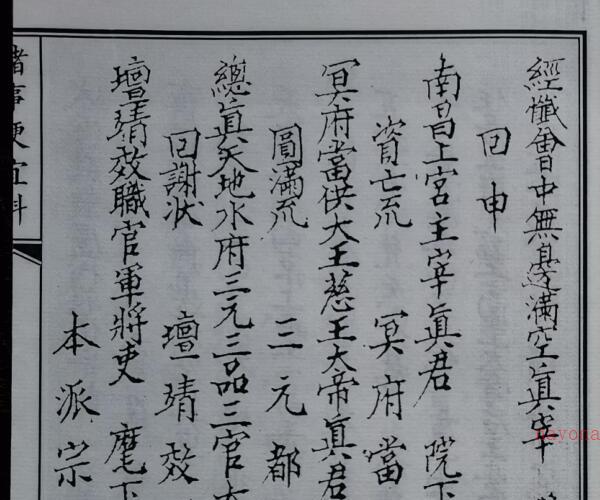 經懺會中無邊滿空真宰
回申
南昌上宮主宰眞君 院下
資亡疏 冥府當
冥府當供大王慈王大帝眞君
圓滿疏 三元都
總眞天地水府三元三品三官大
回謝狀 壇靖效
壇靖效職官軍將吏 麾下
本派宗
諸事便宜科
nayona